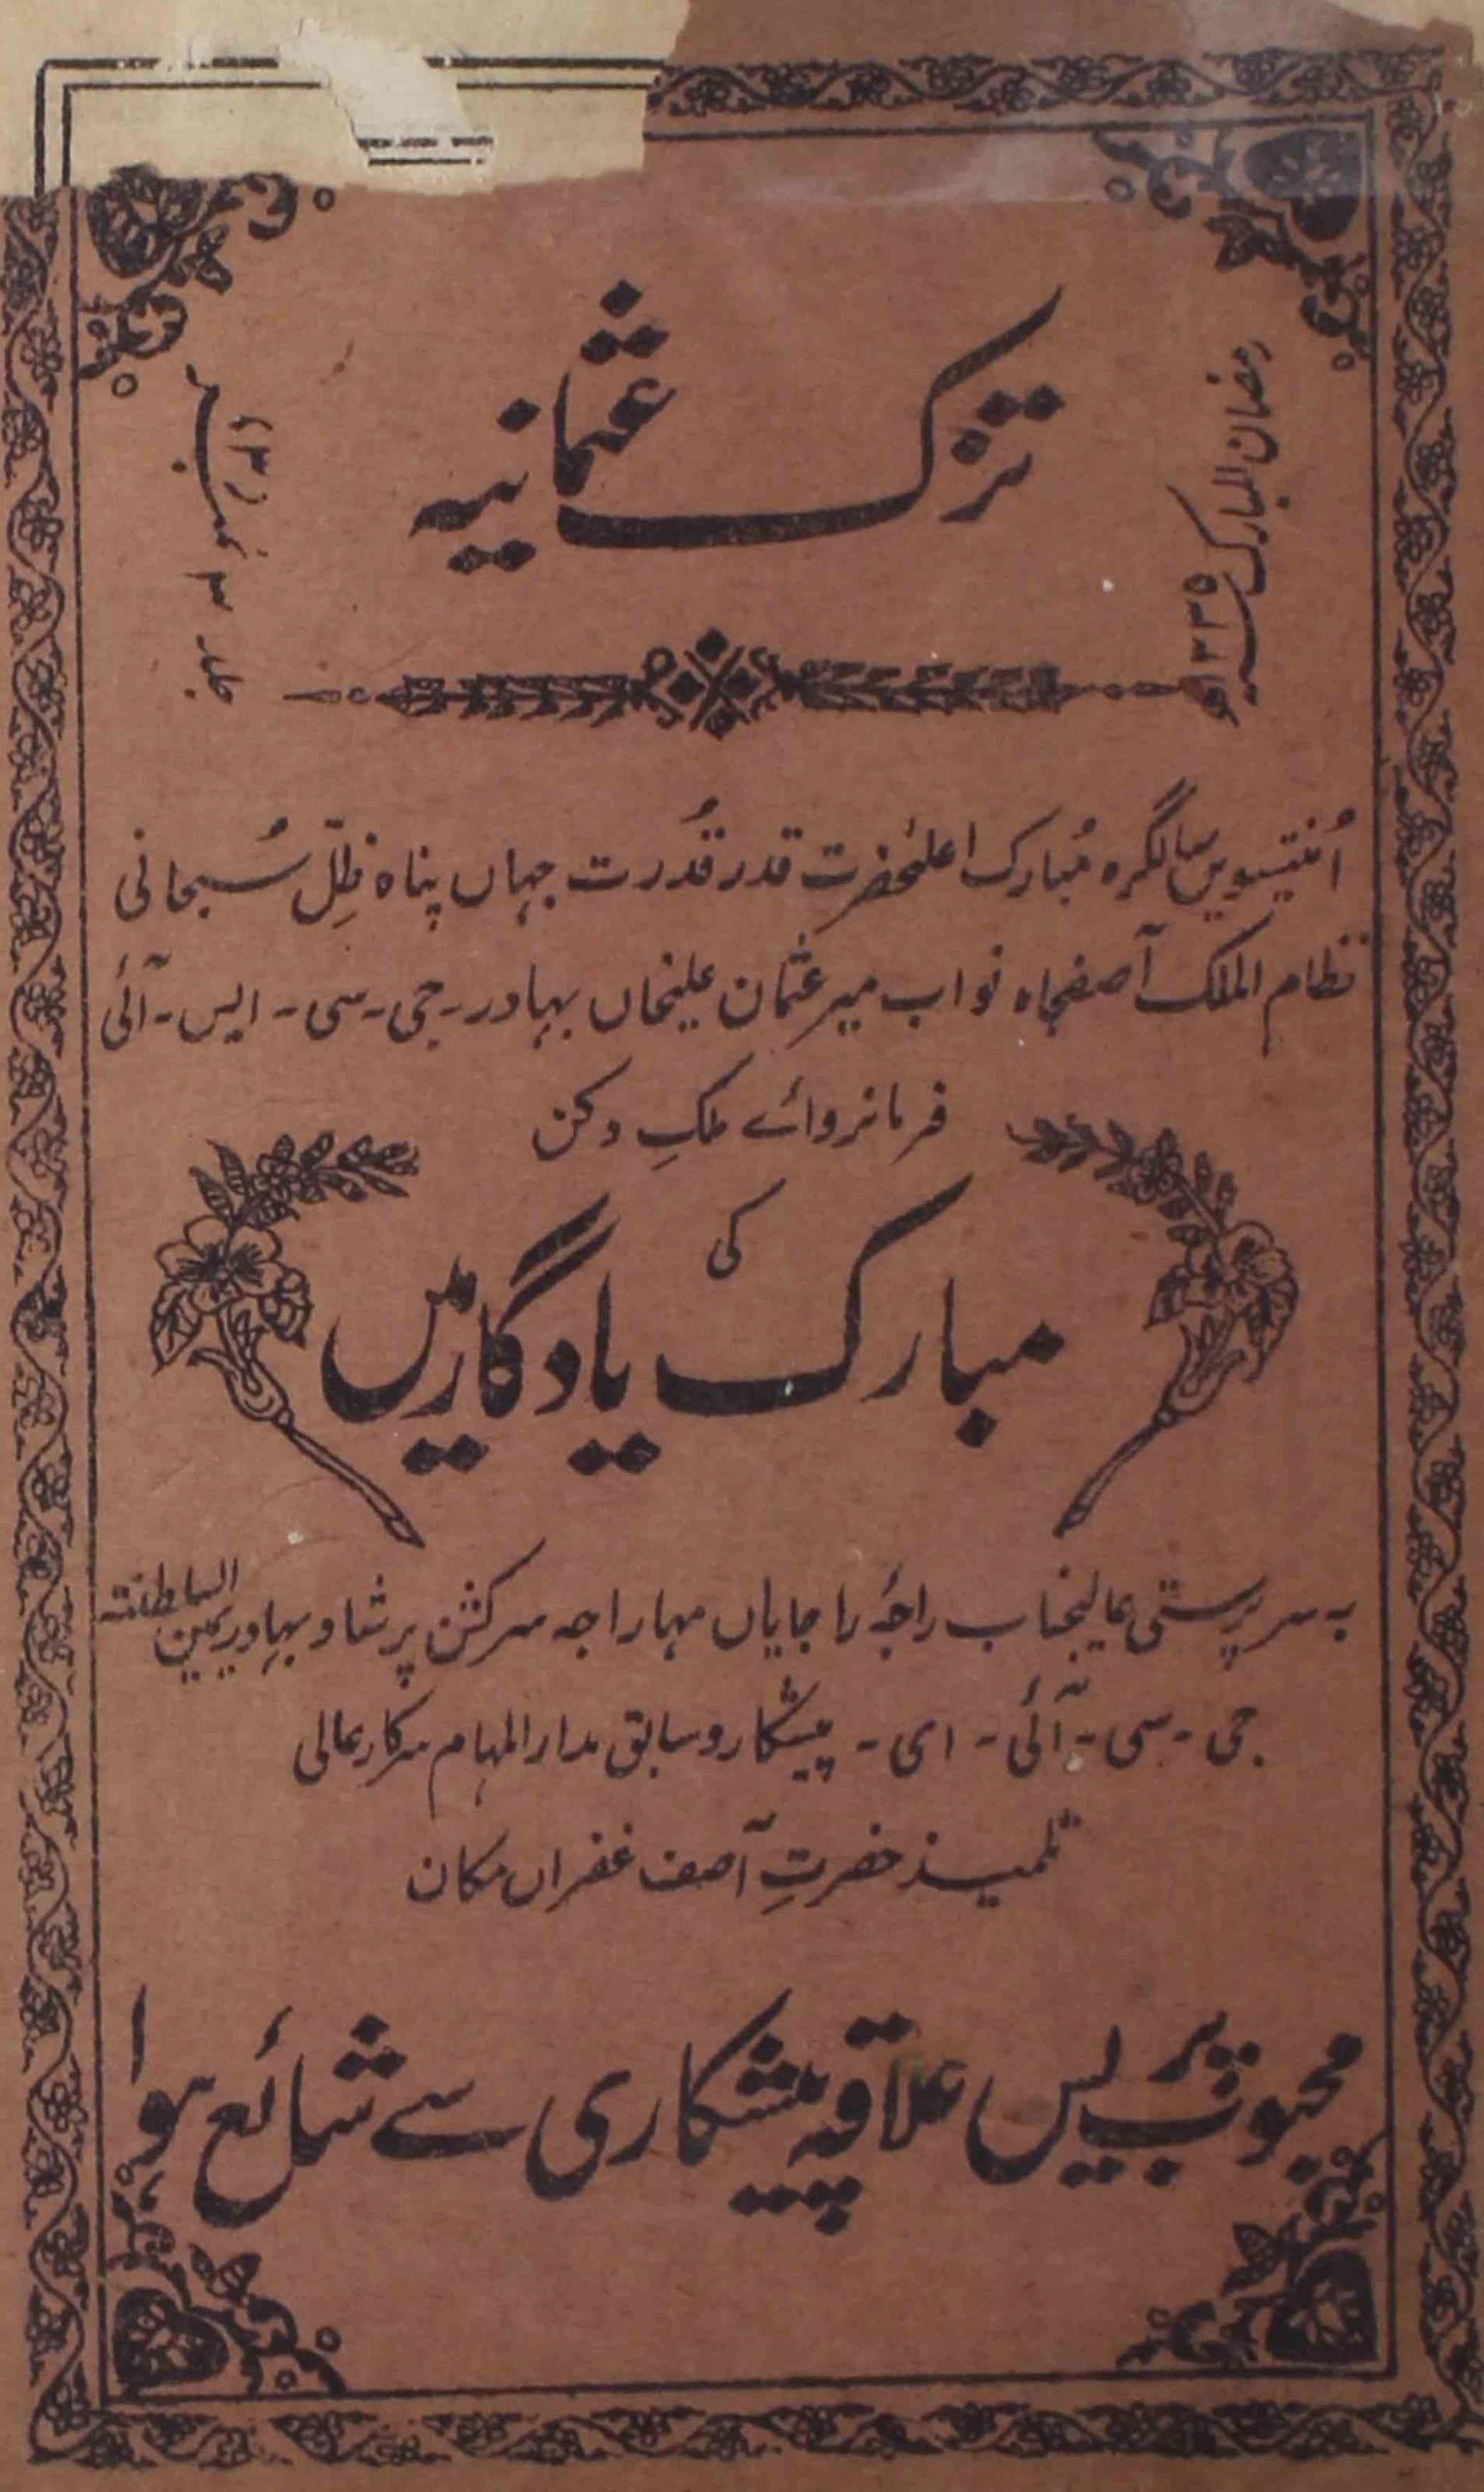 تزک عثمانیہ
رمضان المبارک ۱۳۳۵ھ
جلد ۳ نمبر (۳)
اُنتیسویں سالگرہ مُبارک اعلٰحضرت قدر قُدرت جہاں پناہ ظِلّ سُبحانی
نظام الملک آصفجاہ نواب میر عثمان علیخاں بہادر - جی - سی - ایس - آئی
فرمانروائے ملکِ دکن
کی
مبارک یادگار میں
بہ سرپرستی عالیجناب راجۂ راجایاں مہاراجہ سرکشن پرشاد بہادر یمین السلطنتہ
جی - سی - آئی - ای - پیشکار و سابق مدارالمہام سرکارعالی
تلمیذ حضرتِ آصف غفراں مکان
محبوب پریس علاقہ پیشکاری سے شائع ہوا